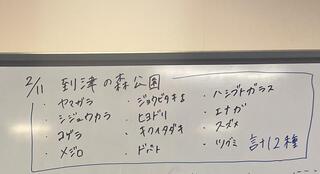 2/11 到津の森公園
・ヤマガラ
・シジュウカラ
・コゲラ
・メジロ
・ジョウビタキ♀
・ヒヨドリ
・キクイタダキ
・ドバト
・ハシブトガラス
・エナガ
・スズメ
・ツグミ
計12種